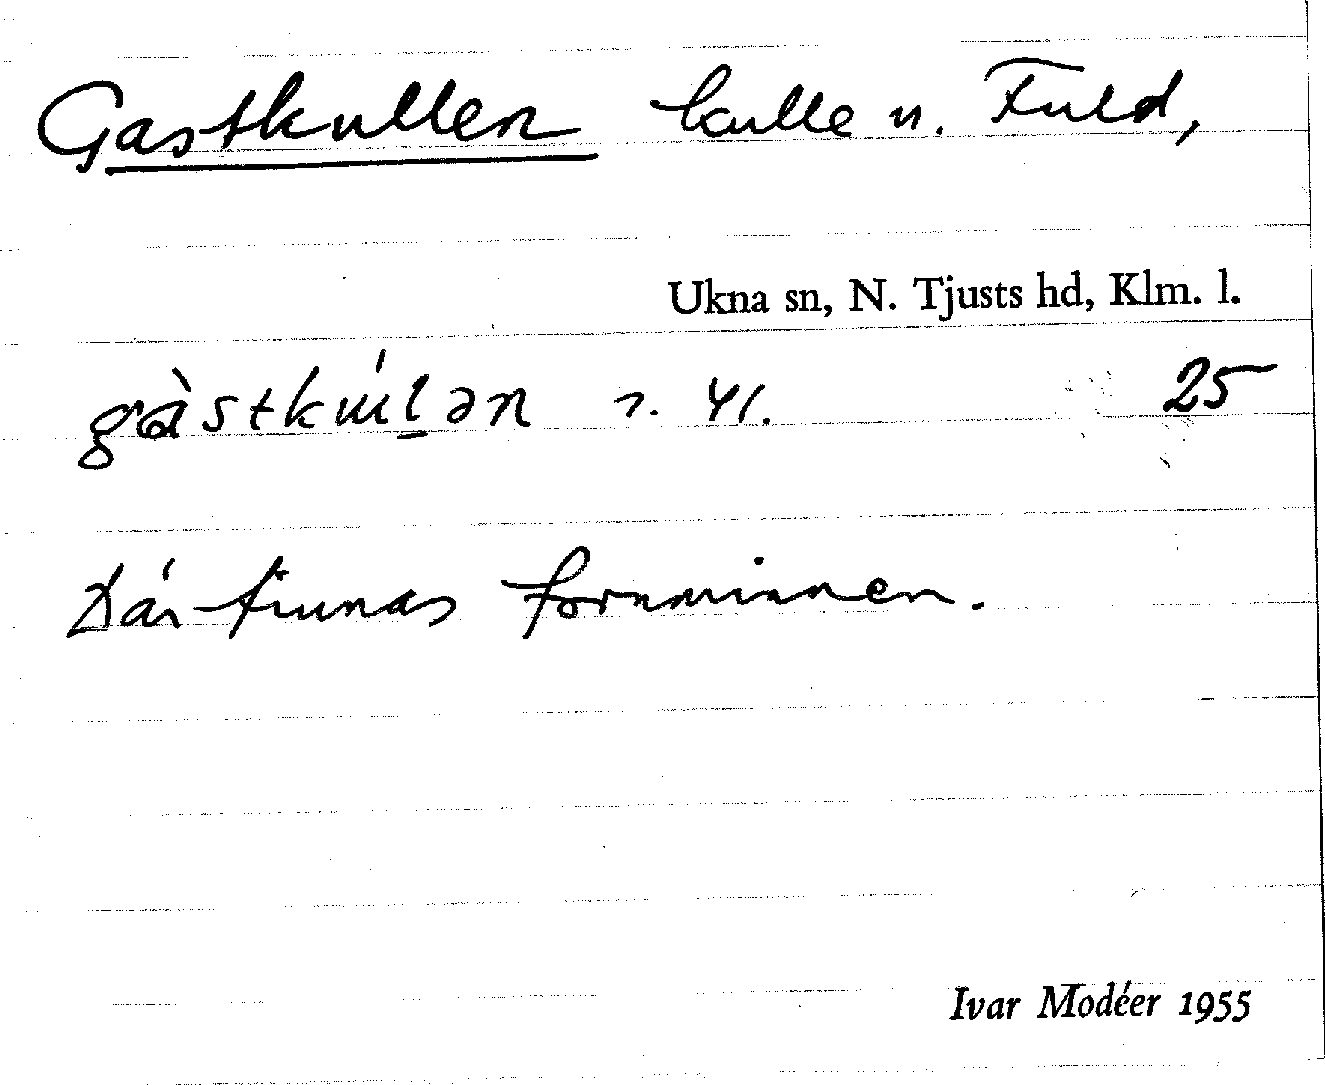 Gastkullen kulle n. Fuld,
Ukna sn, N. Tjusts hd, Klm. l.
25
Där finnas fornminnen.
Ivar Modéer 1955